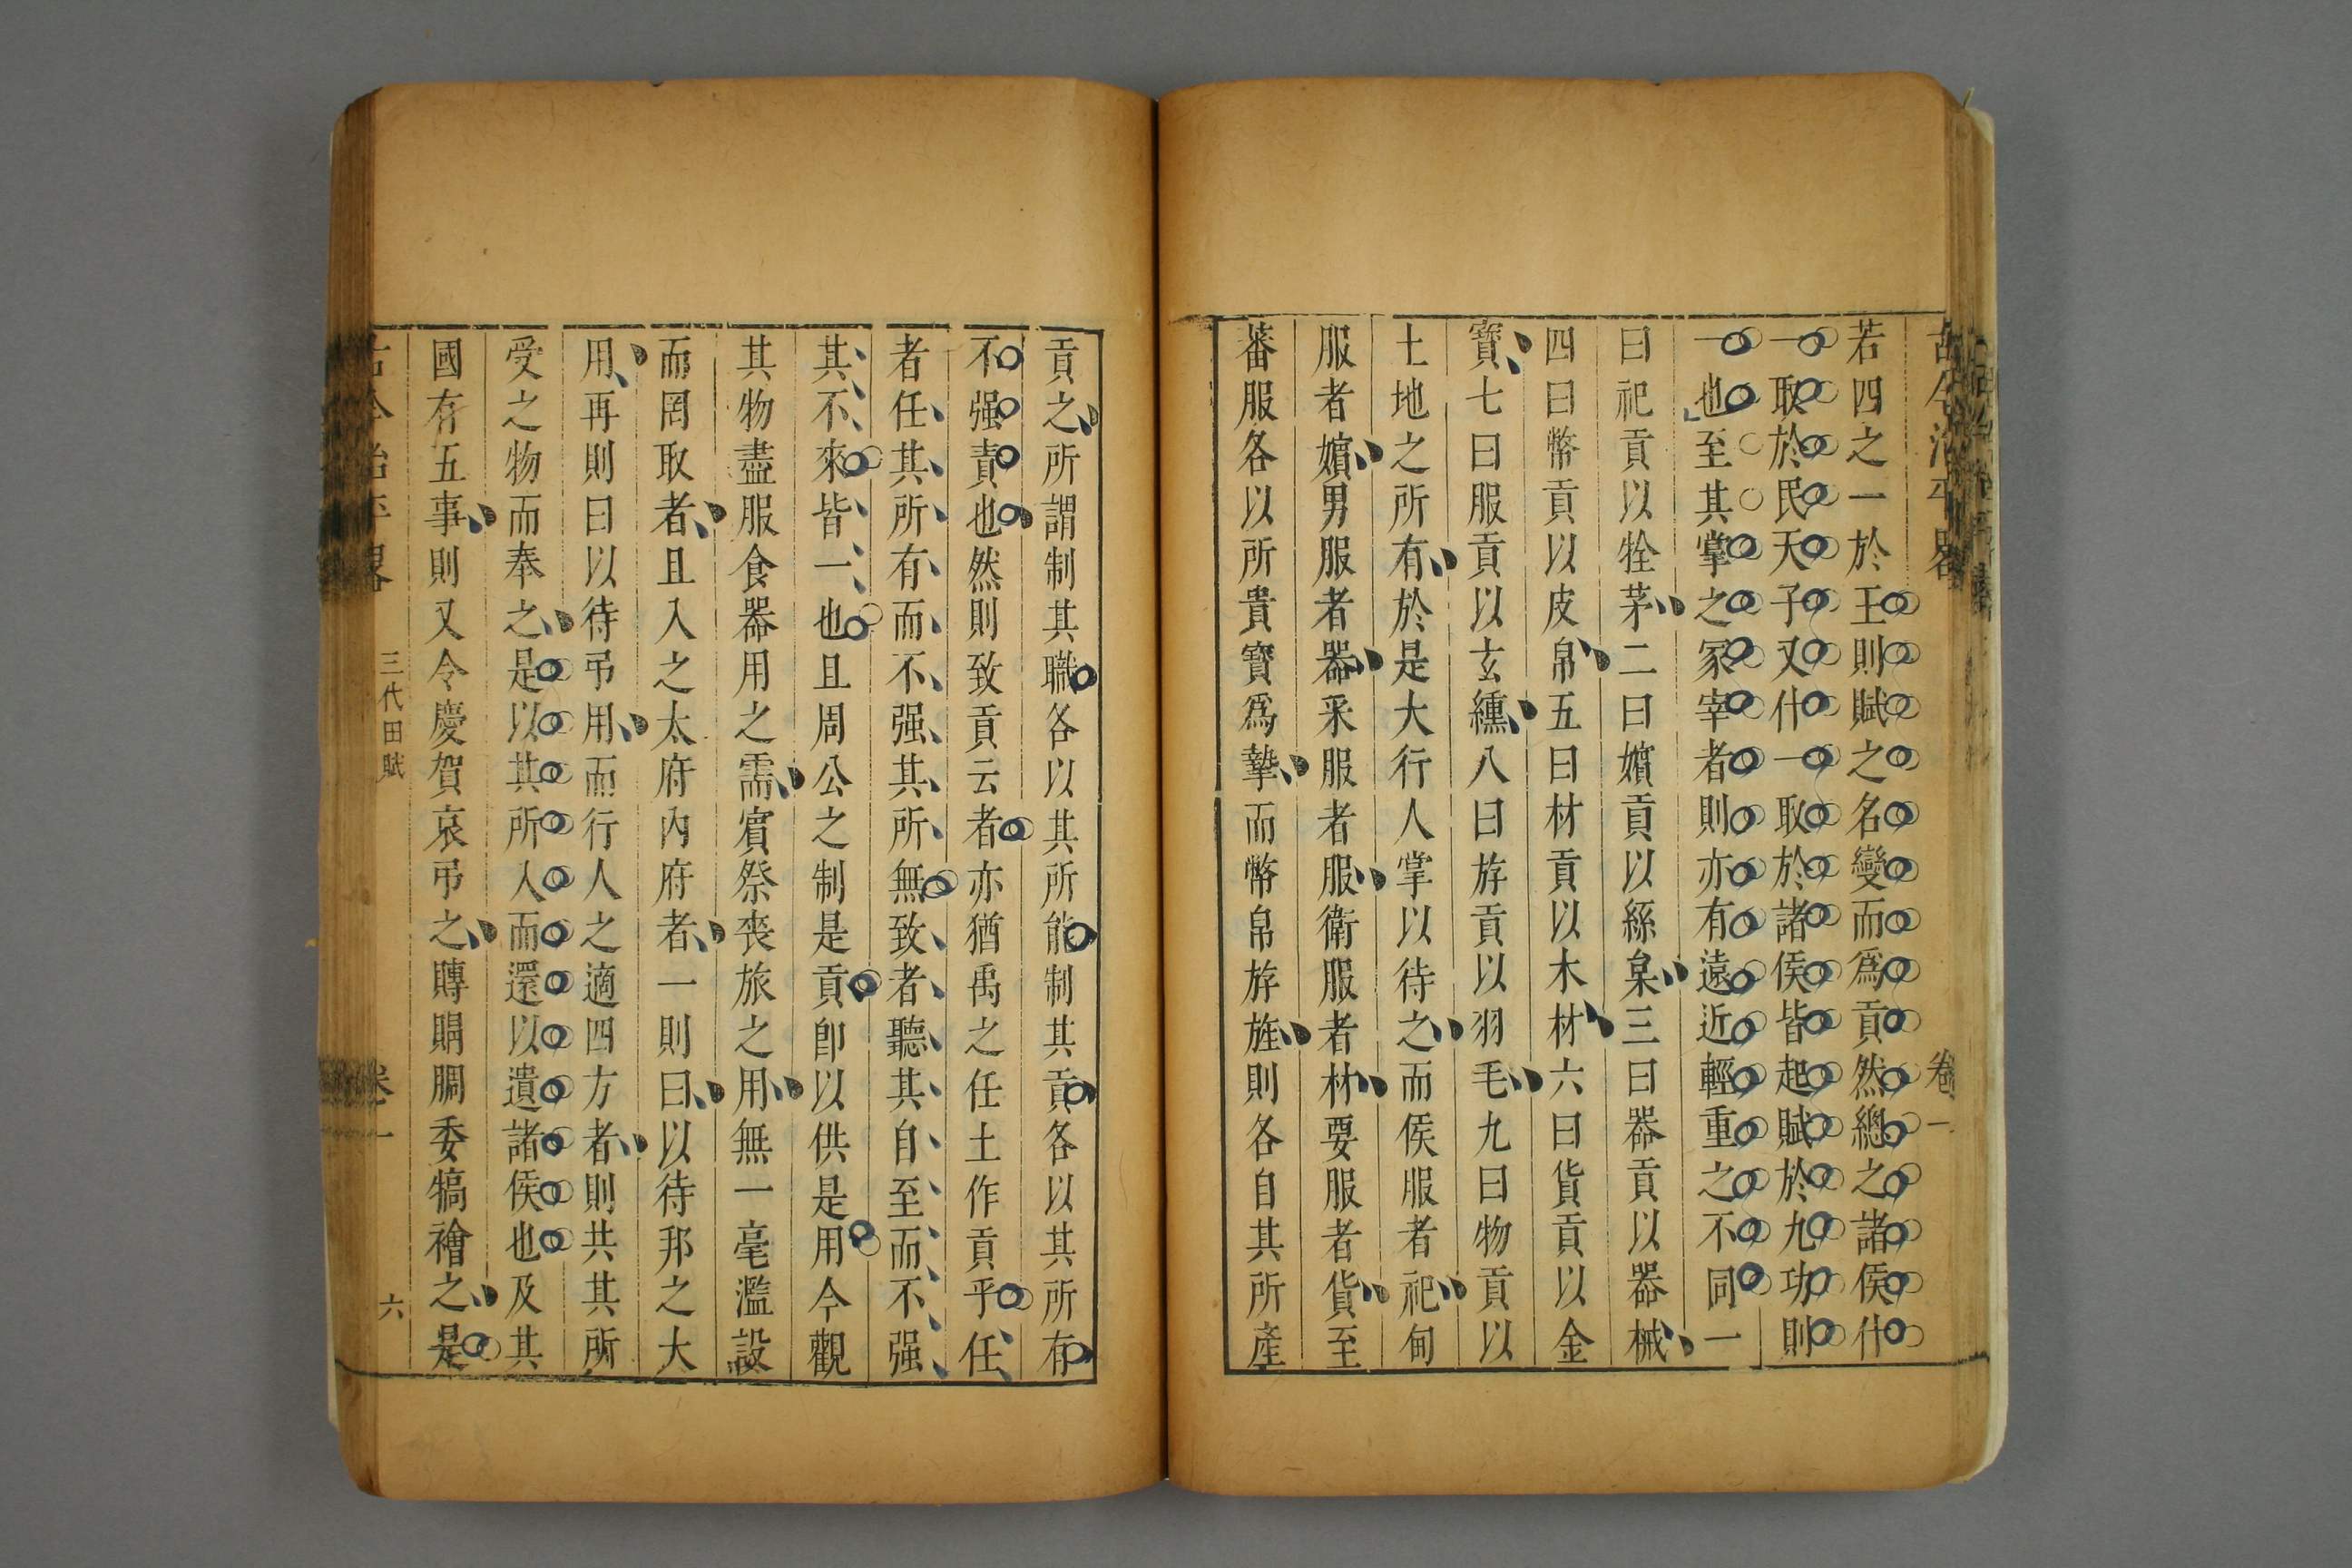 古今治平畧 卷一
若四之一於王則賦之名變而爲貢然總之諸侯什
一取於民天子又什一取於諸侯皆起賦於九功則
一也至其掌之冢宰者則亦有遠近輕重之不同一
曰祀貢以牷茅二曰嬪貢以絲枲三曰器貢以器械
四曰幣貢以皮帛五曰材貢以木材六曰貨貢以金
寶七曰服貢以玄纁八曰斿貢以羽毛九曰物貢以
土地之所有於是大行人掌以待之而侯服者祀甸
服者嬪男服者器采服者服衛服者材要服者貨至
蕃服各以所貴寶爲摯而幣帛斿旌則各自其所產
貢之所謂制其職各以其所能制其貢各以其所有
不强責也然則致貢云者亦猶禹之任土作貢乎任
者任其所有而不强其所無致者聽其自至而不强
其不來皆一也且周公之制是貢卽以供是用今觀
其物盡服食器用之需賓祭喪旅之用無一毫濫設
而罔取者且入之太府內府者一則曰以待邦之大
用再則曰以待弔用而行人之適四方者則共其所
受之物而奉之是以其所人而還以遺諸侯也及其
國有五事則又令慶賀哀弔之賻賵賙委犒禬之是
古今治平畧 三代田賦 卷一 六